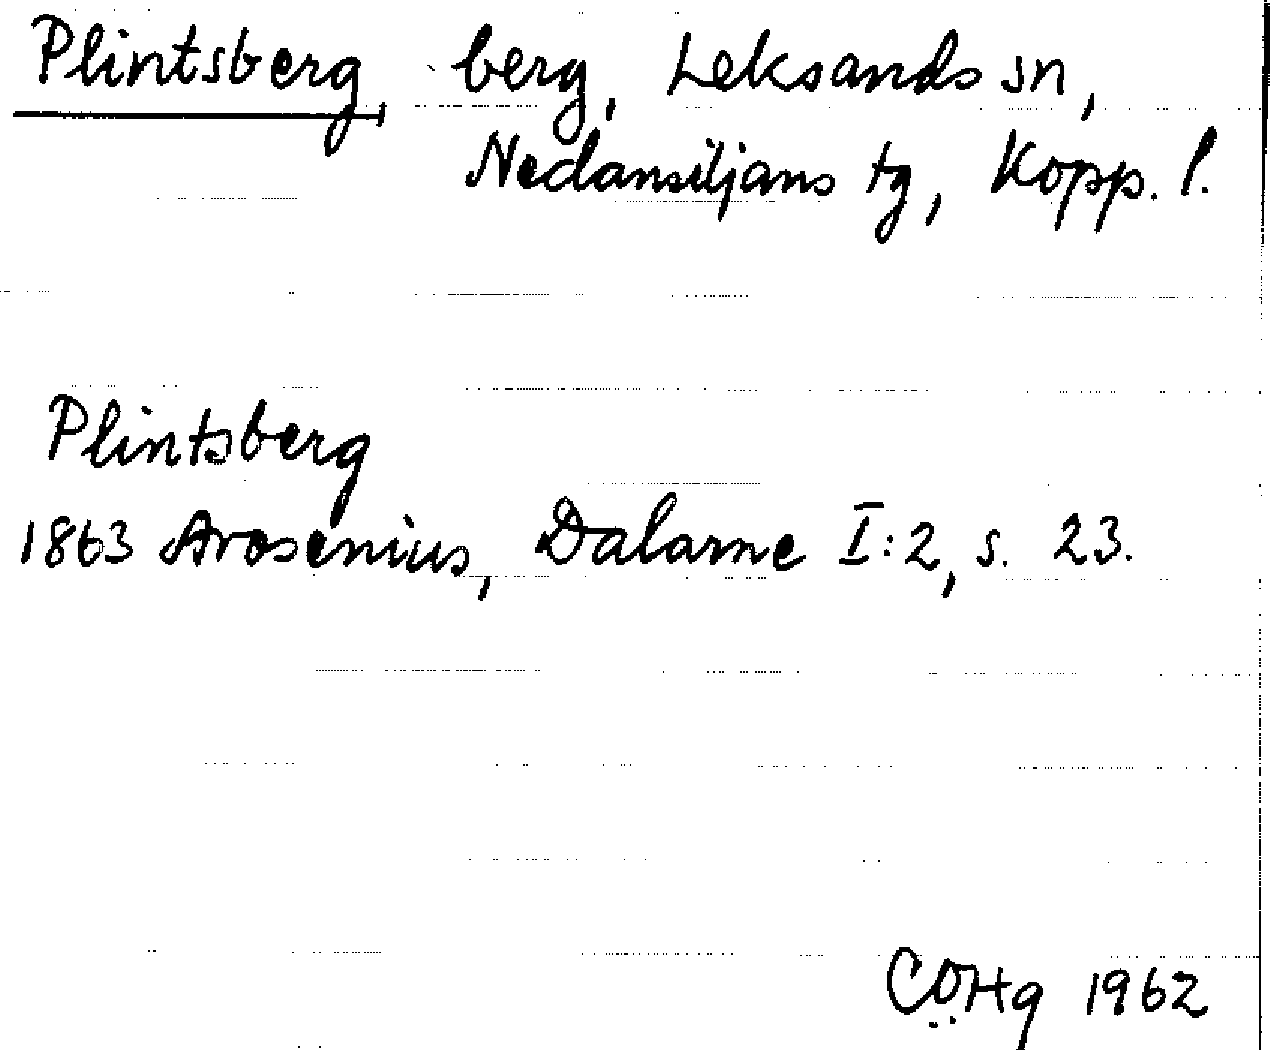 Plintsberg, berg, Leksands sn,
Nedansiljans tg, Kopp. l.
Plintsberg
1863 Arosenius, Dalarne I:2, s. 23.
CÖHg 1962